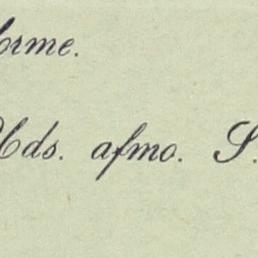 orme.
Uds. afmo. S.